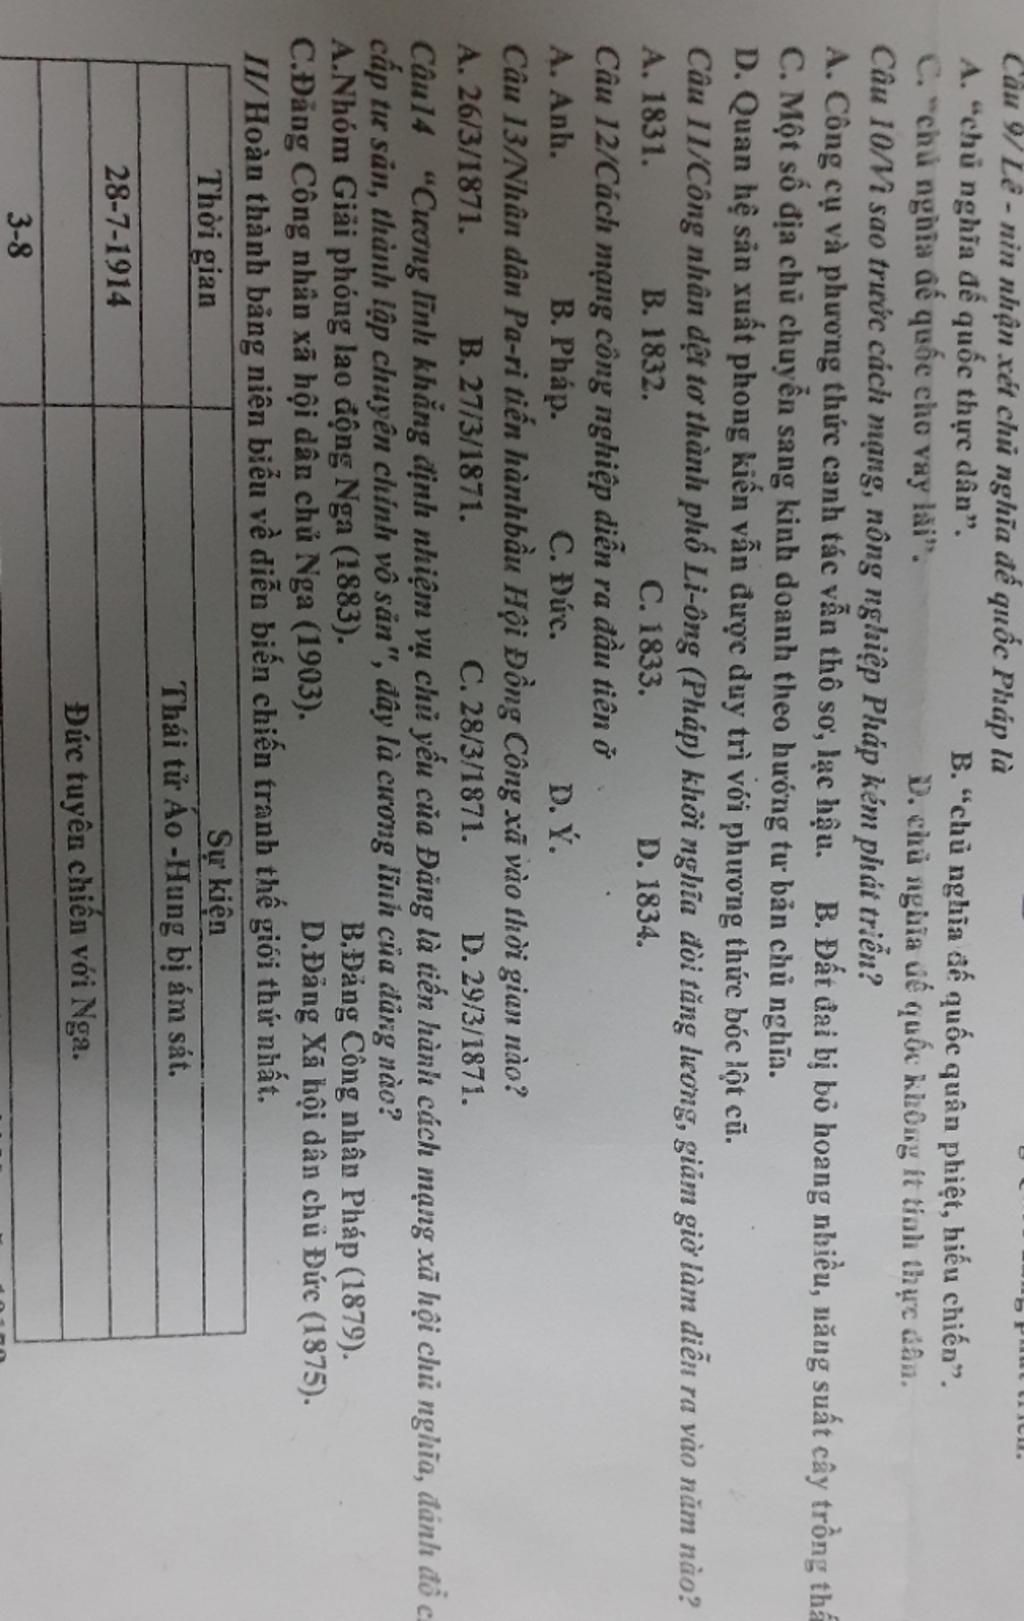 Câu 9/ Lê - nin nhận xét chủ nghĩa đế quốc Pháp là
A. “chủ nghĩa đế quốc thực dân”. B. “chủ nghĩa đế quốc quân phiệt, hiếu chiến”.
C. “chủ nghĩa đế quốc cho vay lãi”. D. chủ nghĩa đế quốc không ít tính thực dân.
Câu 10/Vì sao trước cách mạng, nông nghiệp Pháp kém phát triển?
A. Công cụ và phương thức canh tác vẫn thô sơ, lạc hậu. B. Đất đai bị bỏ hoang nhiều, năng suất cây trồng
C. Một số địa chủ chuyển sang kinh doanh theo hướng tư bản chủ nghĩa.
D. Quan hệ sản xuất phong kiến vẫn được duy trì với phương thức bóc lột cũ.
Câu 11/Công nhân dệt tơ thành phố Li-ông (Pháp) khởi nghĩa đòi tăng lương, giảm giờ làm diễn ra vào năm nào?
A. 1831. B. 1832. C. 1833. D. 1834.
Câu 12/Cách mạng công nghiệp diễn ra đầu tiên ở
A. Anh. B. Pháp. C. Đức. D. Ý.
Câu 13/Nhân dân Pa-ri tiến hànhbầu Hội Đồng Công xã vào thời gian nào?
A. 26/3/1871. B. 27/3/1871. C. 28/3/1871. D. 29/3/1871.
Câu14 “Cương lĩnh khẳng định nhiệm vụ chủ yếu của Đảng là tiến hành cách mạng xã hội chủ nghĩa, đánh đổ
cấp tư sản, thành lập chuyên chính vô sản", đây là cương lĩnh của đảng nào?
A.Nhóm Giải phóng lao động Nga (1883). B.Đảng Công nhân Pháp (1879).
C.Đảng Công nhân xã hội dân chủ Nga (1903). D.Đảng Xã hội dân chủ Đức (1875).
II/ Hoàn thành bảng niên biểu về diễn biến chiến tranh thế giới thứ nhất.
Thời gian Sự kiện
Thái tử Áo -Hung bị ám sát.
28-7-1914
Đức tuyên chiến với Nga.
3-8